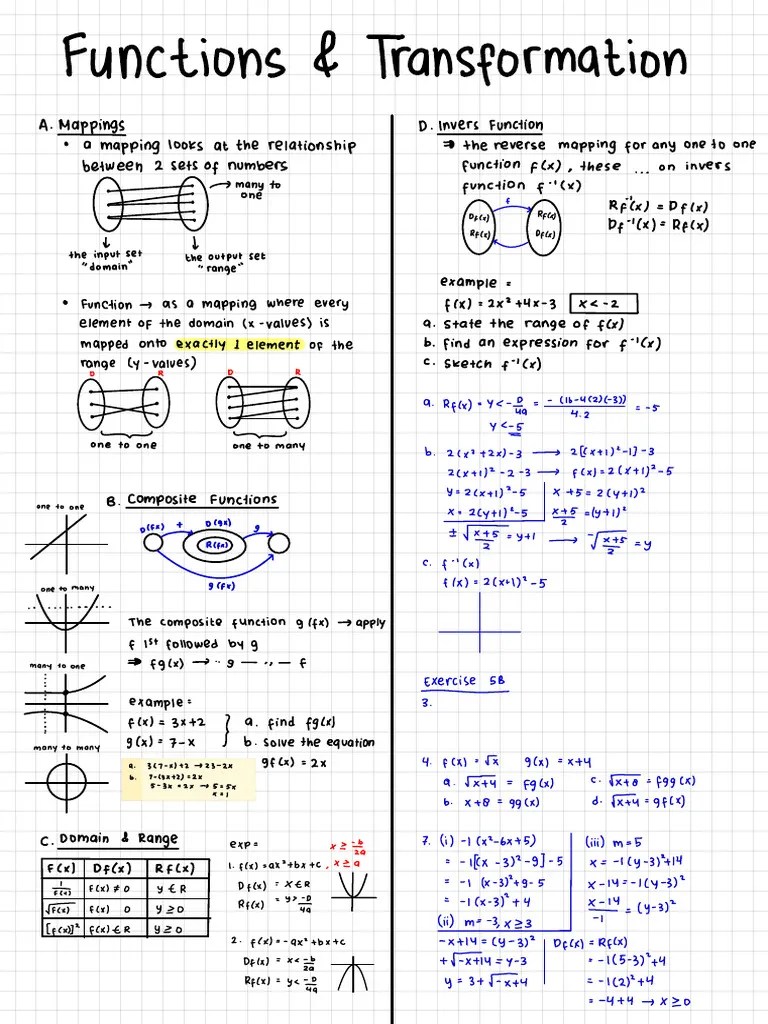 Functions & Transformation
A. Mappings
• a mapping looks at the relationship
between 2 sets of numbers
many to
one
the input set
"domain"
the output set
"range"
• Function → as a mapping where every
element of the domain (x-values) is
mapped onto exactly 1 element of the
range (y-values)
D R D R
one to one one to many
B. Composite Functions
one to one
one to many
many to one
many to many
D(fx) + D(gx) g
R(fx)
g(fx)
The composite function g(fx) → apply
f 1st followed by g
⇒ fg(x) → ·· g — ,, — f
example =
f(x) = 3x+2 } a. find fg(x)
g(x) = 7-x b. solve the equation
gf(x) = 2x
a. 3(7-x)+2 → 23-2x
b. 7-(3x+2)=2x
5-3x=2x → 5=5x
x=1
C. Domain & Range
F(x) Df(x) Rf(x)
1/F(x) F(x) ≠ 0 y ∈ R
√F(x) F(x) 0 y ≥ 0
[F(x)]² F(x) ∈ R y ≥ 0
exp= x ≥ -b/2a
1. f(x)=ax²+bx+c, x ≥ a
Df(x) = x ∈ R
Rf(x) = y > -D/4a
2. f(x)=-ax²+bx+c
Df(x) = x < -b/2a
Rf(x) = y < -D/4a
D. Invers Function
⇒ the reverse mapping for any one to one
function f(x), these ... on invers
function f⁻¹(x)
f
Df(x) Rf(x)
Rf(x) Df(x)
Rf⁻¹(x) = Df(x)
Df⁻¹(x) = Rf(x)
example =
f(x) = 2x²+4x-3 x < -2
a. state the range of f(x)
b. find an expression for f⁻¹(x)
c. sketch f⁻¹(x)
a. Rf(x) = y < -D/4a = -(16-4(2)(-3))/4.2 = -5
y < -5
b. 2(x²+2x)-3 → 2[(x+1)²-1]-3
2(x+1)²-2-3 → f(x)=2(x+1)²-5
y=2(x+1)²-5 x+5=2(y+1)²
x=2(y+1)²-5 x+5/2=(y+1)²
±√x+5/2=y+1 → -√x+5/2=y
c. f⁻¹(x)
f(x)=2(x+1)²-5
Exercise 5B
3.
4. f(x)=√x g(x)=x+4
a. √x+4 = fg(x) c. √x+8 = fgg(x)
b. x+8 = gg(x) d. √x+4 = gf(x)
7. (i) -1(x²-6x+5)
= -1[(x-3)²-9]-5
= -1 (x-3)²+9-5
= -1(x-3)²+4
(ii) m=-3, x≥3
-x+14=(y-3)²
+√-x+14=y-3
y=3+√-x+4
(iii) m=5
x=-1(y-3)²+14
x-14=-1(y-3)²
x-14/-1=(y-3)²
Df(x)=Rf(x)
=-1(5-3)²+4
=-1(2)²+4
=-4+4 → x≥0